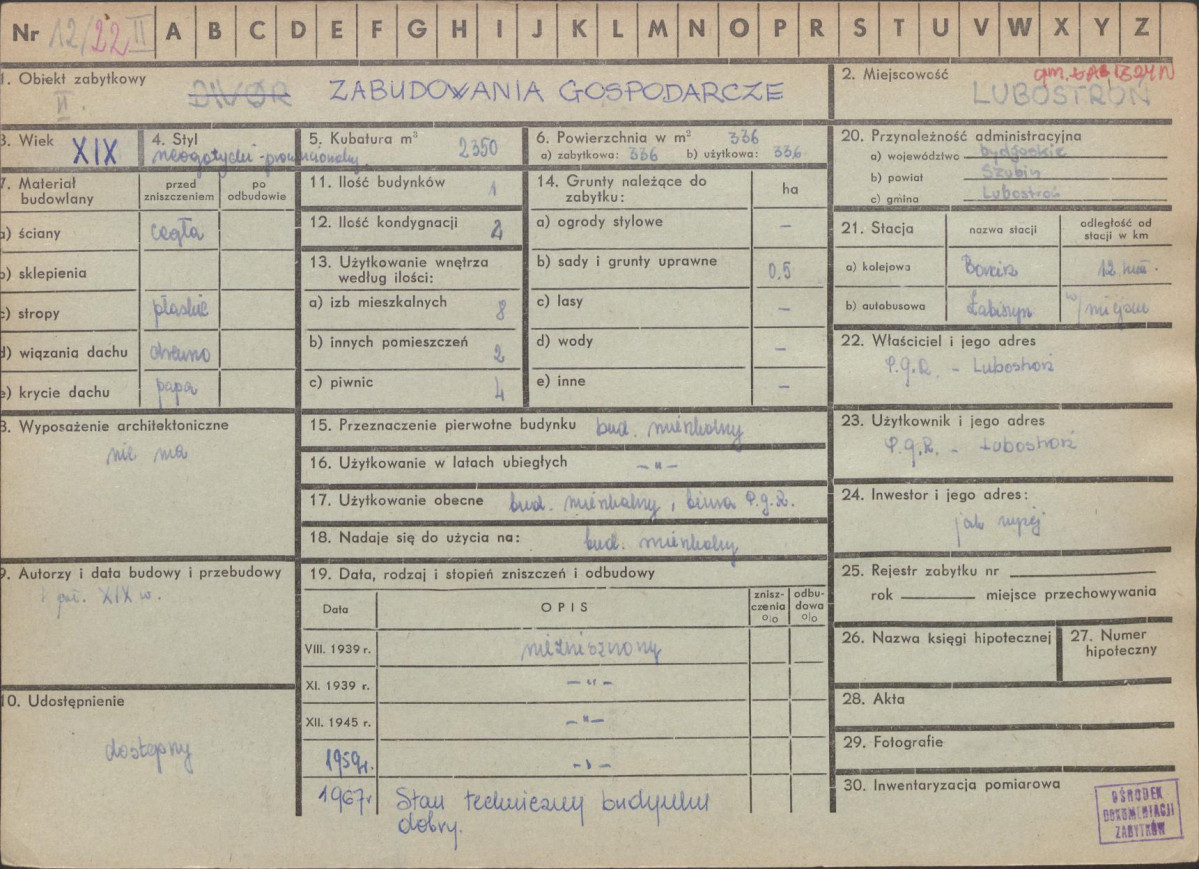 Nr 12/22 II A B C D E F G H I J K L M N O P R S T U V W X Y Z
1. Obiekt zabytkowy
II. DWÓR ZABUDOWANIA GOSPODARCZE
2. Miejscowość gm. ŁABISZYN
LUBOSTROŃ
3. Wiek XIX
4. Styl
neogotycki - prowincjonalny.
5. Kubatura m³ 2350
6. Powierzchnia w m² 336
a) zabytkowa: 336 b) użytkowa: 336
7. Materiał budowlany
przed zniszczeniem
po odbudowie
a) ściany cegła
b) sklepienia
c) stropy płaskie
d) wiązania dachu drewno
e) krycie dachu papa
8. Wyposażenie architektoniczne
nie ma
9. Autorzy i data budowy i przebudowy
poł. XIX w.
10. Udostępnienie
dostępny
11. Ilość budynków 1
12. Ilość kondygnacji 2
13. Użytkowanie wnętrza
według ilości:
a) izb mieszkalnych 8
b) innych pomieszczeń 2
c) piwnic 4
14. Grunty należące do
zabytku:
ha
a) ogrody stylowe –
b) sady i grunty uprawne 0.5
c) lasy –
d) wody –
e) inne –
15. Przeznaczenie pierwotne budynku bud. mieszkalny
16. Użytkowanie w latach ubiegłych –"–
17. Użytkowanie obecne bud. mieszkalny, biura P.g.R.
18. Nadaje się do użycia na: bud. mieszkalny
19. Data, rodzaj i stopień zniszczeń i odbudowy
Data
OPIS
znisz-
czenia
o/o
odbu-
dowa
o/o
VIII. 1939 r. niezniszczony
XI. 1939 r. –"–
XII. 1945 r. –"–
1959r. –"–
1967r Stan techniczny budynku
dobry.
20. Przynależność administracyjna
a) województwo bydgoskie
b) powiat Szubin
c) gmina Lubostroń
21. Stacja
nazwa stacji
odległość od
stacji w km
a) kolejowa Barcin 12 km.
b) autobusowa Łabiszyn w/miejscu
22. Właściciel i jego adres
P.g.R. - Lubostroń
23. Użytkownik i jego adres
P.g.R. - Lubostroń
24. Inwestor i jego adres:
jak wyżej
25. Rejestr zabytku nr
rok miejsce przechowywania
26. Nazwa księgi hipotecznej
27. Numer
hipoteczny
28. Akta
29. Fotografie
30. Inwentaryzacja pomiarowa
OŚRODEK
DOKUMENTACJI
ZABYTKÓW